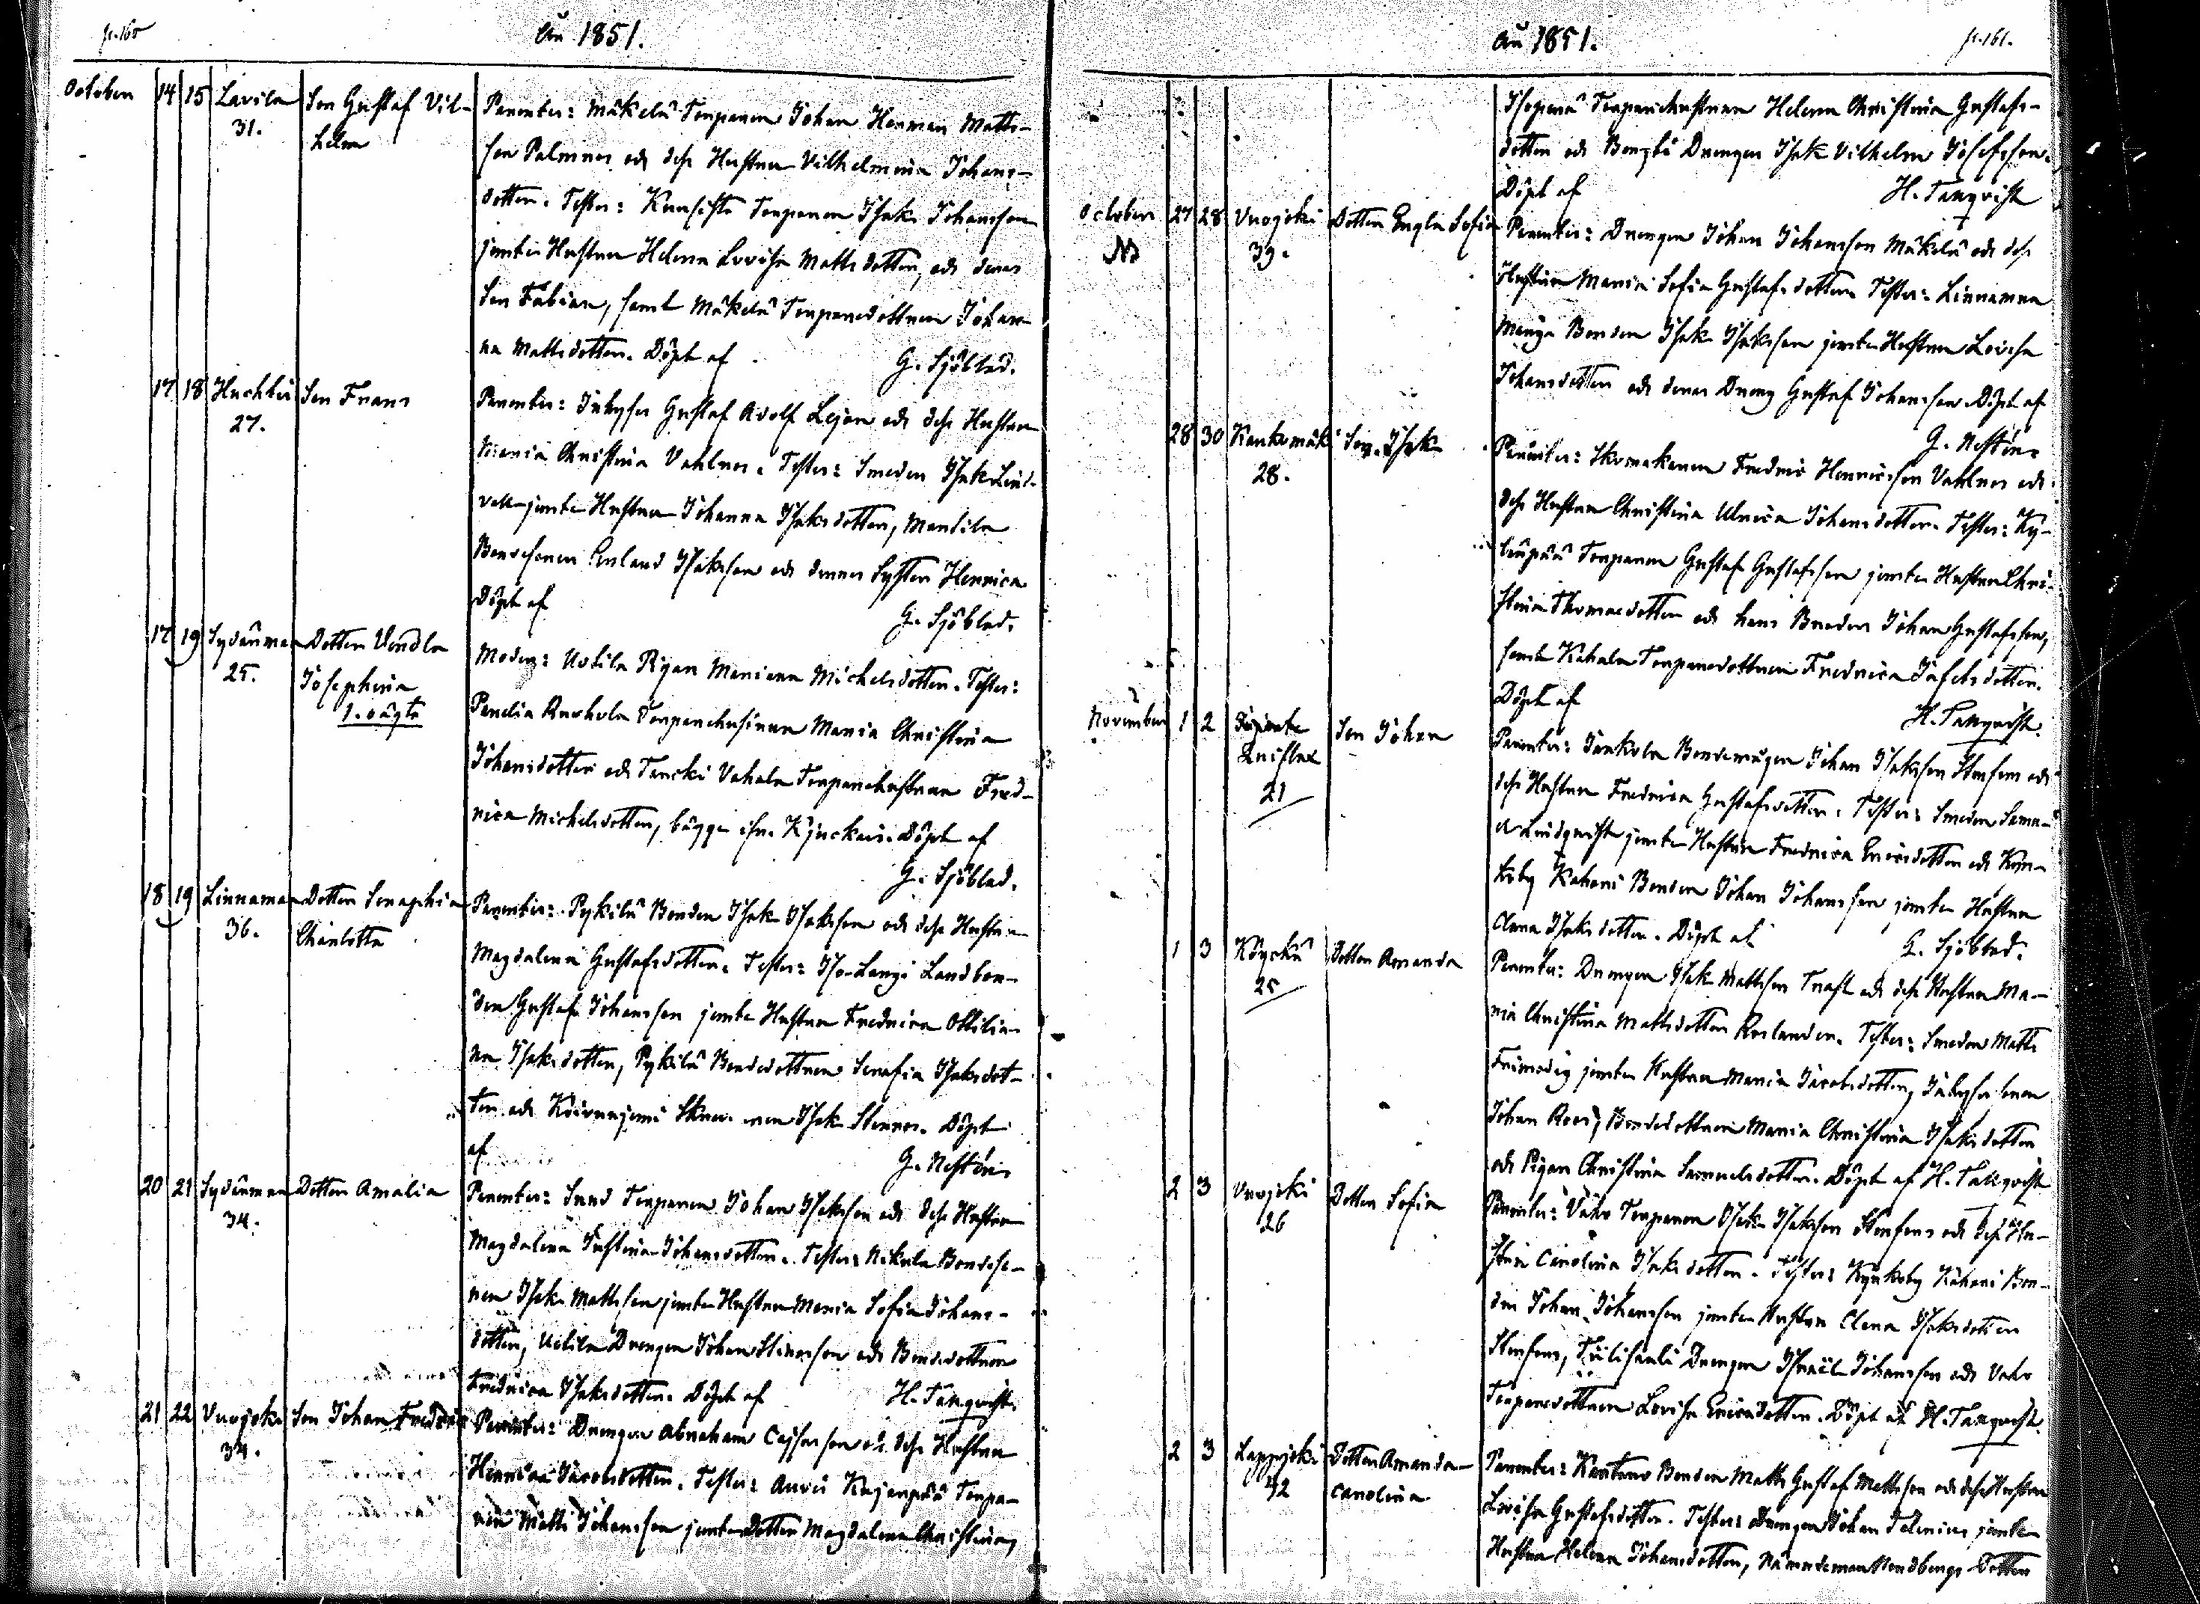 p. 160
Aň 1851.
October 14 15 Lavila Son Gustaf Vil-
31. helm
Parentes: Mäkelä Torparen Johan Herman Matts-
son Palmros och dess Hustru Vilhelmina Johans-
dotter. Testes: Torparen Isak Johansson
jemte Hustrun Helena Lovisa Mattsdotter, och deras
Son Fabian, samt Mäkelä Torparedottren Johan-
na Mattsdotter. Döpt af G. Sjöblad.
17 18 Huchti Son Frans
27.
Parentes: Inhyses Gustaf Adolf Lejon och dess Hustru
Maria Christina Vahlros. Testes: Smeden Isak Lind-
vall jemte Hustrun Johanna Isaksdotter, Mantila
Bondsonen Erland Isaksson och dennes Syster Henrica
Döpt af G. Sjöblad.
17 19 Sydänmaa Dotter Vendla
25. Josephina
1. oägta
Moder: Uotila Pigan Mariana Michelsdotter. Testes:
Panelia Torparehustrun Maria Christina
Johansdotter och Vahala Torparehustrun Fred-
rica Michelsdotter, bägge ifrån Kjuckais. Döpt af
G. Sjöblad.
18 19 Linnamaa Dotter Seraphia
36. Charlotta
Parentes: Pykilä Bonden Isak Isaksson och dess Hustru
Magdalena Gustafsdotter. Testes: Iso-Langi Landbon-
den Gustaf Johansson jemte Hustrun Fredrica Ottilia-
na Isaksdotter, Pykilä Bondedottren Serafia Isaksdot-
ter och Koivuniemi Isak Stenros. Döpt
af G. Nestón.
20 21 Sydänmaa Dotter Amalia
34.
Parentes: Sund Torparen Johan Isaksson och dess Hustru
Magdalena Justina Johansdotter. Testes: Nikula Bondeso-
nen Isak Mattsson jemte Hustrun Maria Sofia Johans-
dotter, Uotila Drengen Johan och Bondedottren
Fredrica Isaksdotter. Döpt af H. Tanqvist.
21 22 Vuojoki Son Johan Fredric
34.
Parentes: Drengen Abraham och dess Hustru
Henrica Jacobsdotter. Testes: Anvi Kajanpää Torpa-
ren Matts Johansson jemte Dotter Magdalena Christina,
Aň 1851.
p. 161.
Torparehustrun Helena Christina Gustafs-
dotter och Drengen Isak Vilhelm Josefsson.
Döpt af H. Tanqvist
October 27 28 Vuojoki Dotter Engla Sofia
39.
Parentes: Drengen Johan Johansson Mäkelä och dess
Hustru Maria Sofia Gustafsdotter. Testes: Linnamaa
Bonden Isak Isaksson jemte Hustrun Lovisa
Johansdotter och deras Dreng Gustaf Johansson. Döpt af
G. Nestón.
28 30 Kaukomäki Son Isak
28.
Parentes: Skomakaren Fredric Henricsson Vahlros och
dess Hustru Christina Ulrica Johansdotter. Testes: Ky-
länpää Torparen Gustaf Gustafsson jemte Hustrun Chri-
stina Thomasdotter och hans Broder Johan Gustafsson,
samt Kahala Torparedottren Fredrica Josefsdotter.
Döpt af H. Tanqvist.
November 1 2 Son Johan
21
Parentes: Jaakola Bondemågen Johan Isaksson Stenfors och
dess Hustru Fredrica Gustafsdotter. Testes: Smeden Samu-
el Lindqvist jemte Hustrun Fredrica Ericsdotter och Kyn-
koby Kahari Bonden Johan Johansson jemte Hustrun
Clara Isaksdotter. Döpt af G. Sjöblad.
1 3 Köyckä Dotter Amanda
25
Parentes: Drengen Isak Mattsson Trast och dess Hustru Ma-
ria Christina Mattsdotter Roslander. Testes: Smeden Matts
Frimodig jemte Hustrun Maria Jacobsdotter, Inhyseskarlen
Johan Roos, Bondedottren Maria Christina Isaksdotter
och Pigan Christina Samuelsdotter. Döpt af H. Tanqvist
2 3 Vuojoki Dotter Sofia
26
Parentes: Vuho Torparen Isak Isaksson Stenfors och dess Hu-
stru Carolina Isaksdotter. Testes: Kynkoby Kahari Bon-
den Johan Johansson jemte Hustrun Clara Isaksdotter
Stenfors, Drengen Israël Johansson och Vuho
Torparedottren Lovisa Ericsdotter. Döpt af H. Tanqvist.
2 3 Lappijoki Dotter Amanda
42 Carolina
Parentes: Kantano Bonden Matts Gustaf Mattsson och dess Hustru
Lovisa Gustafsdotter. Testes: Drengen Johan Salenius jemte
Hustrun Helena Johansdotter, Nämndeman Nordbergs Dotter